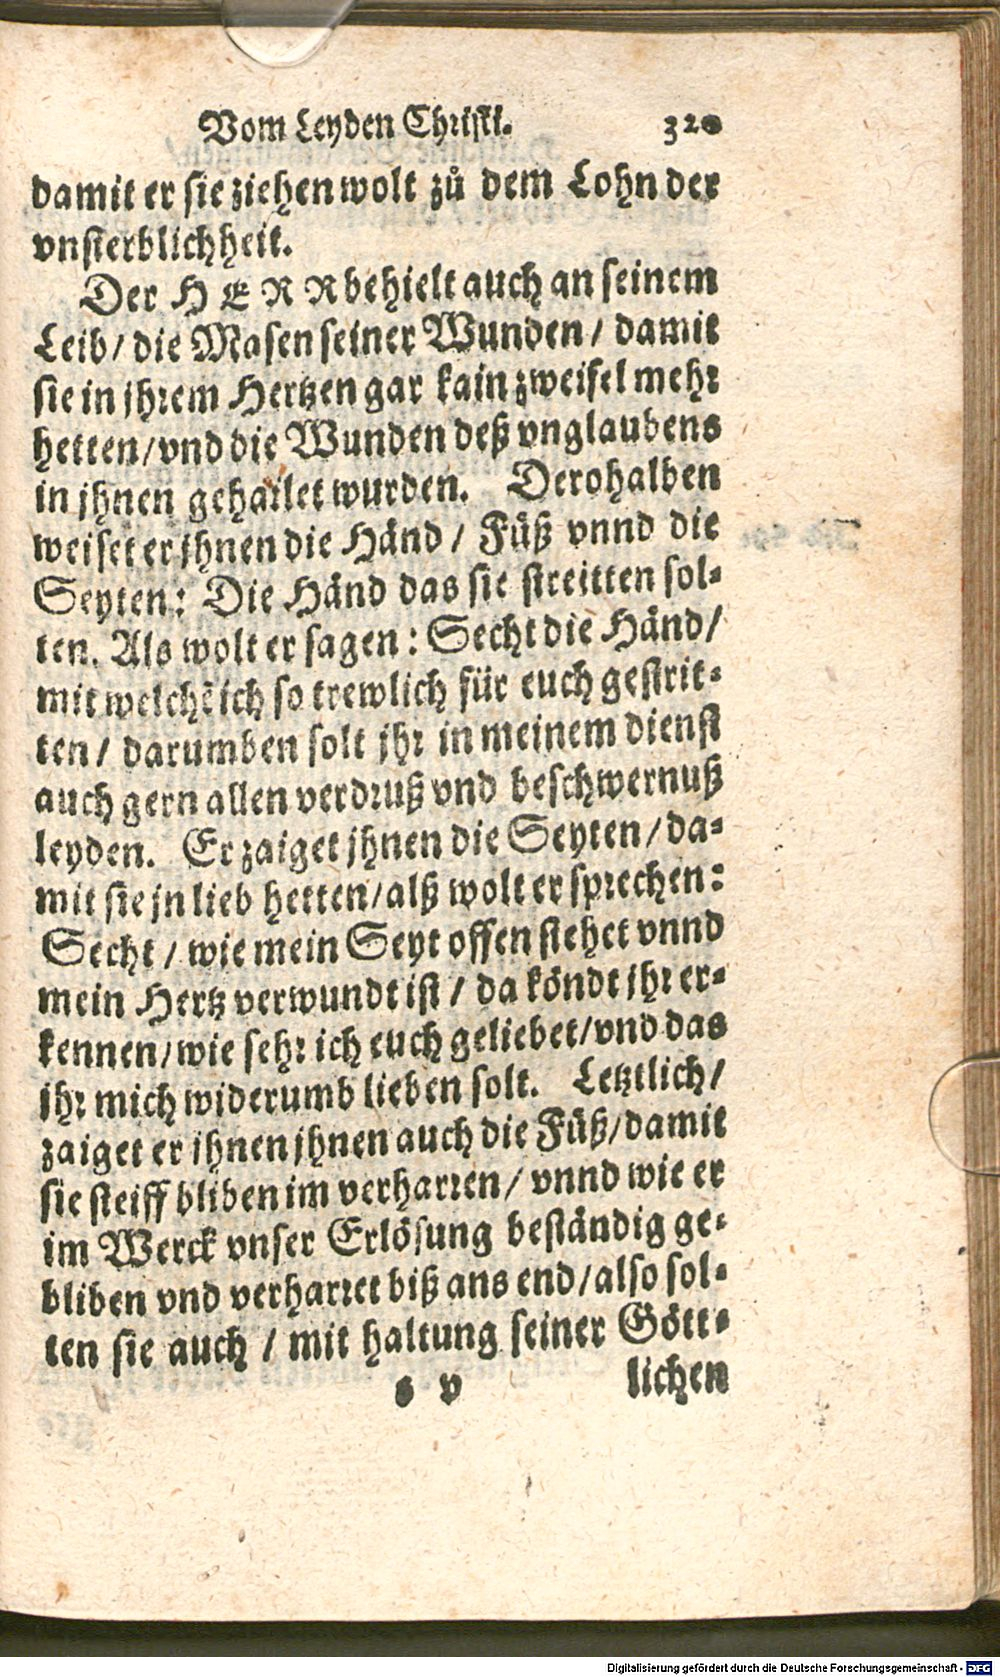 Vom Leyden Christi. 320
damit er sie ziehen wolt zů dem Lohn der
vnsterblichheit.
Der HERR behielt auch an seinem
Leib/ die Masen seiner Wunden/ damit
sie in jhrem Hertzen gar kain zweifel mehr
hetten/vnd die Wunden deß vnglaubens
in jhnen gehailet wurden. Derohalben
weiset er jhnen die Händ/ Füß vnnd die
Seyten: Die Händ das sie streitten sol-
ten. Als wolt er sagen: Secht die Händ/
mit welchē ich so trewlich für euch gestrit-
ten/ darumben solt jhr in meinem dienst
auch gern allen verdruß vnd beschwernuß
leyden. Er zaiget jhnen die Seyten/da-
mit sie jn lieb hetten/alß wolt er sprechen:
Secht/ wie mein Seyt offen stehet vnnd
mein Hertz verwundt ist/ da köndt jhr er-
kennen/wie sehr ich euch geliebet/vnd das
jhr mich widerumb lieben solt. Letztlich/
zaiget er jhnen jhnen auch die Füß/damit
sie steiff bliben im verharren/ vnnd wie er
im Werck vnser Erlösung beständig ge-
bliben vnd verharret biß ans end/also sol-
ten sie auch/ mit haltung seiner Gött-
s v lichen
Digitalisierung gefördert durch die Deutsche Forschungsgemeinschaft - DFG